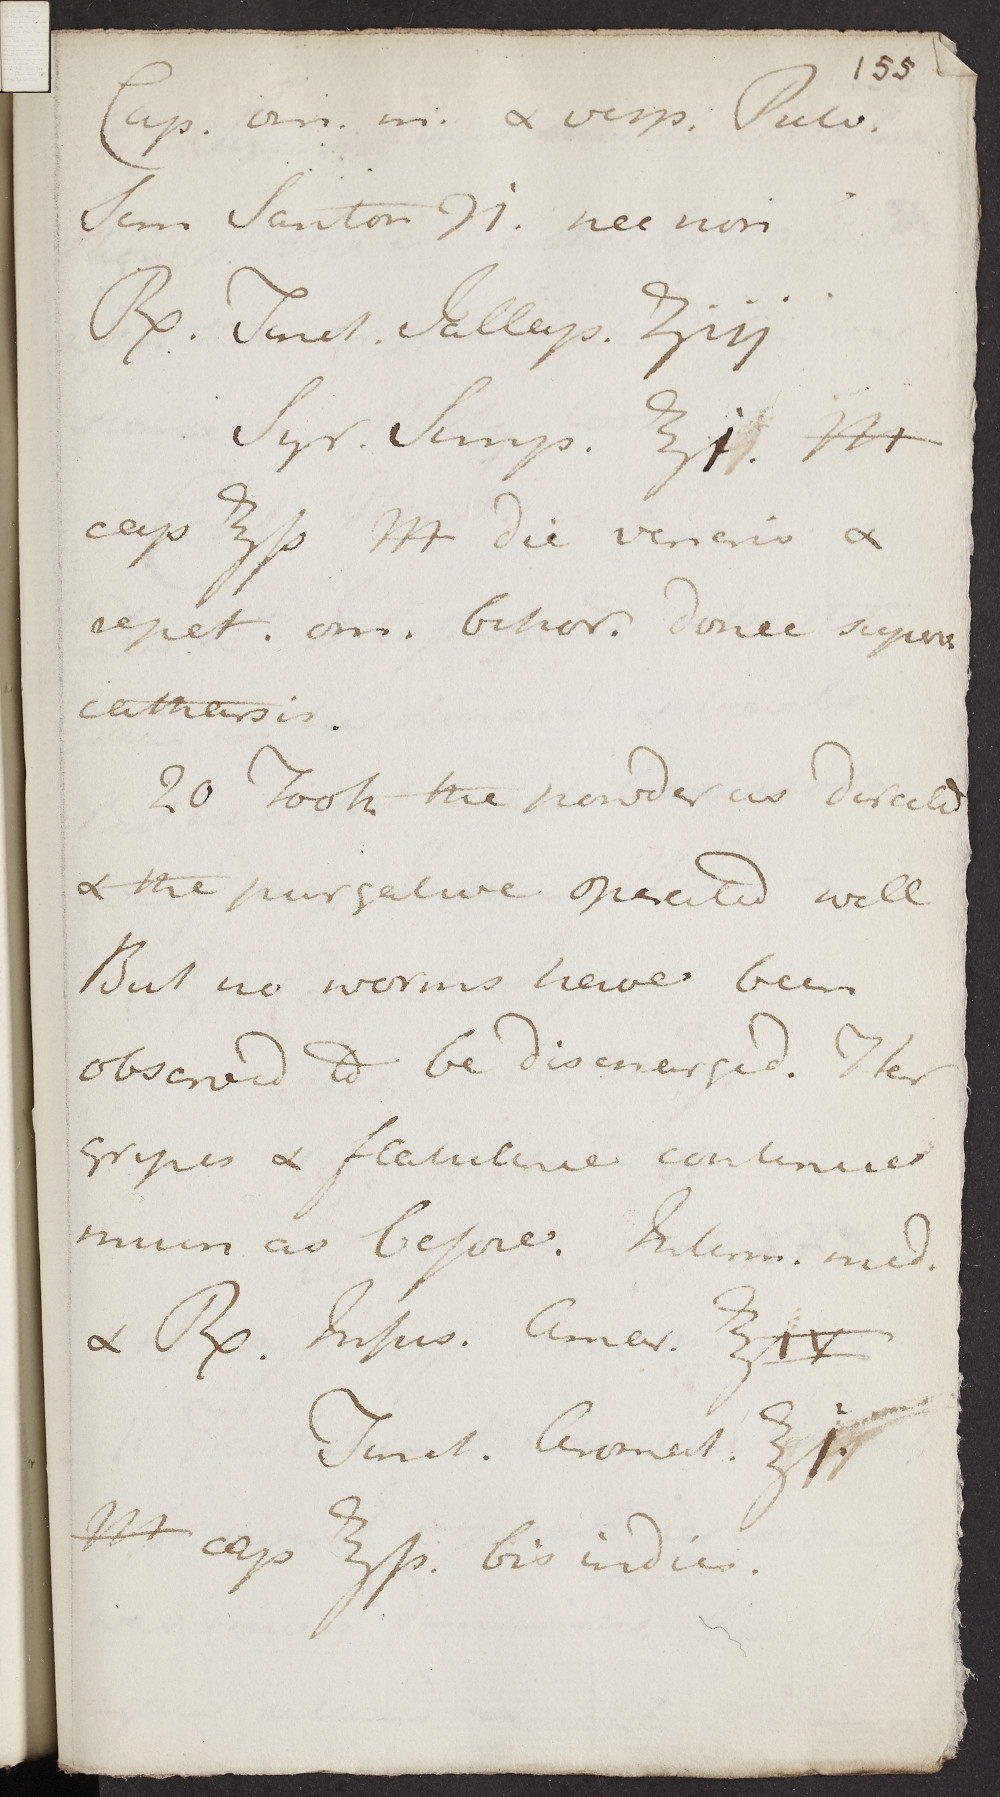 155
Cap. om. m. & vesp. Pulv.
Sem Santon ℈i. nec non
Rx. Tinct. Jallap. ℥iij
Syr. Simp. ℥i. M
cap ℥ß M die veneris &
repet. om. bihor. donec superv
catharsis.
20 Took the powder as directed
& the purgative operated well
But no worms have been
observed to be discharged. Her
gripes & flatulence continue
much as before. Interm. med.
& Rx. Infus. Amar. ℥iv
Tinct. Aromat. ℥i.
M cap ℥ß. bis indies.